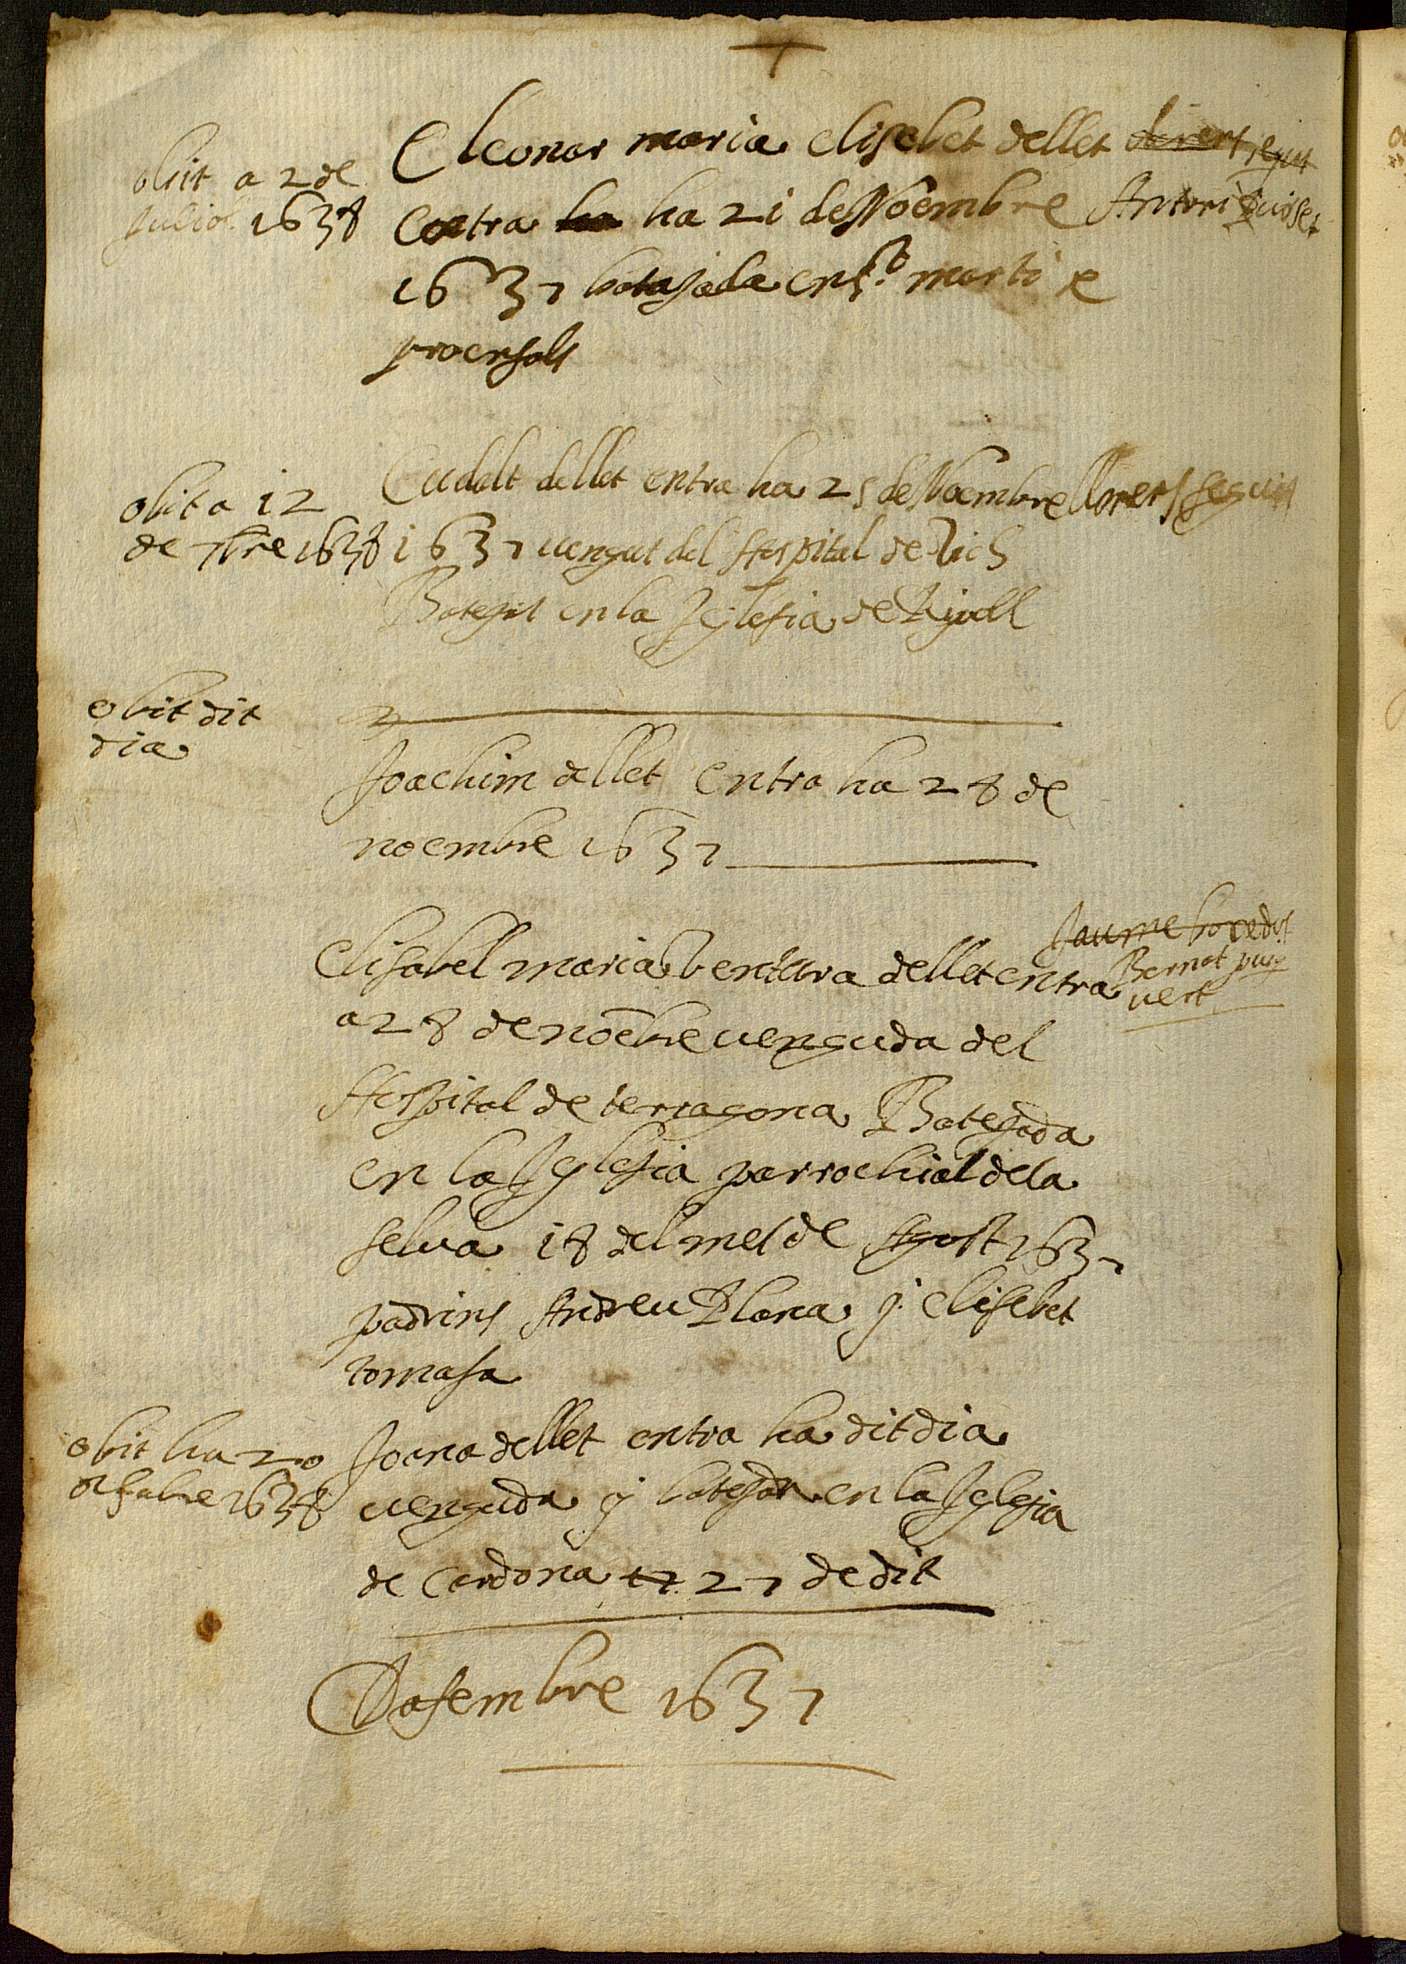 Eleonor maria elisabet dellet
entra ha 21 de Noembre
1637 batejada en St. marti
provensals
obiit a 2 de
Juliol 1638
Antoni
Cudolt dellet entra ha 25 de Noembre
1637 vengut del Hospital de Vich
Batejat en la Iglesia de Ripoll
obit a 12
de 7bre 1638
llorens seguin
obit dit
dia
Joachim dellet entra ha 28 de
noembre 1637
Elisabel maria bentura dellet entra
a 28 de noēbre venguda del
Hospital de terragona Batejada
en la Iglesia parrochial de la
selva 18 del mes de Agost 1637
padrins Andreu Plana y elisebet
tomasa
Jaume
Bernat puig
vert
Joana dellet entra ha dit dia
venguda y batejada en la Iglesia
de Cardona 27 de dit
obit ha 20
1638
Dasembre 1637